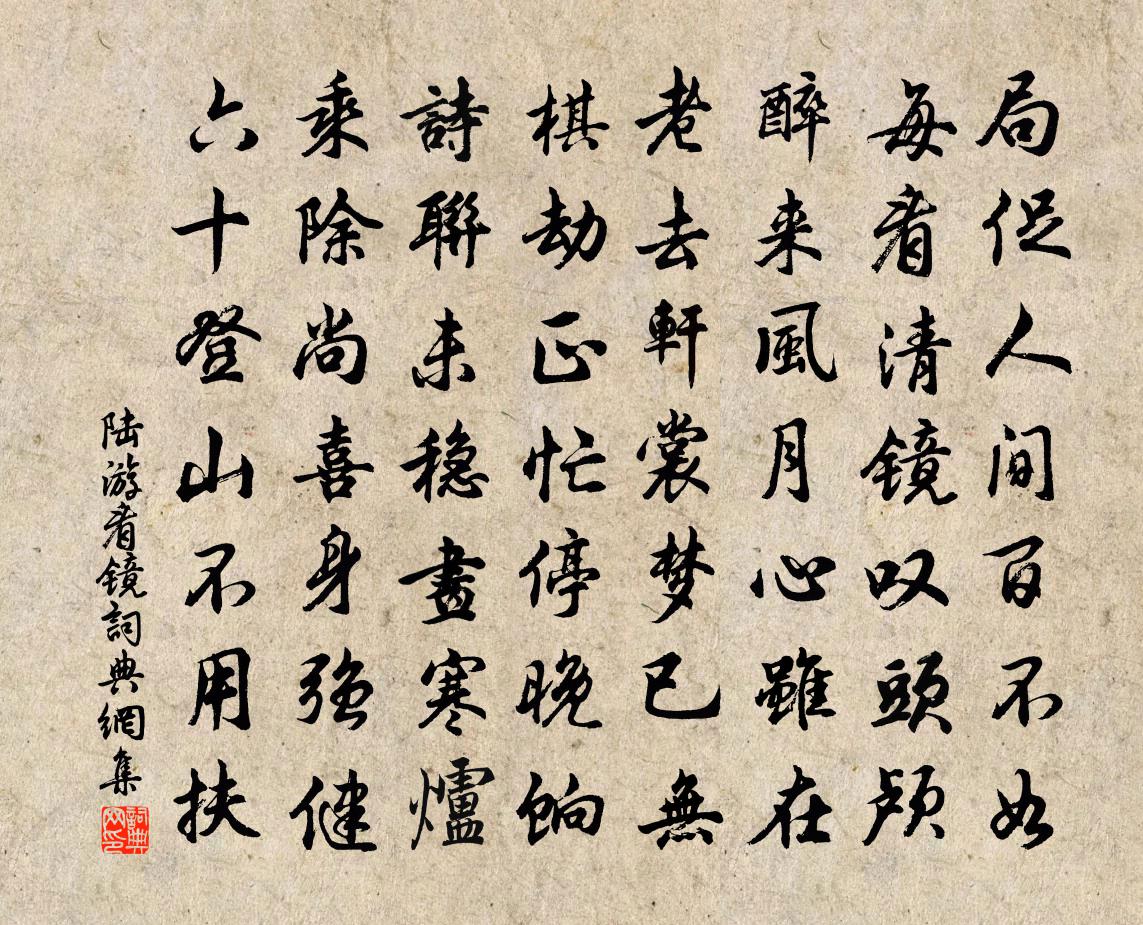 局促人间百不如
每看清镜叹頭颅
醉来風月心雖在
老去軒裳梦已無
棋劫正忙停晚饷
詩聯未稳畫寒爐
乘除尚喜身强健
六十登山不用扶
陆游看镜詞典網集
詞典网印